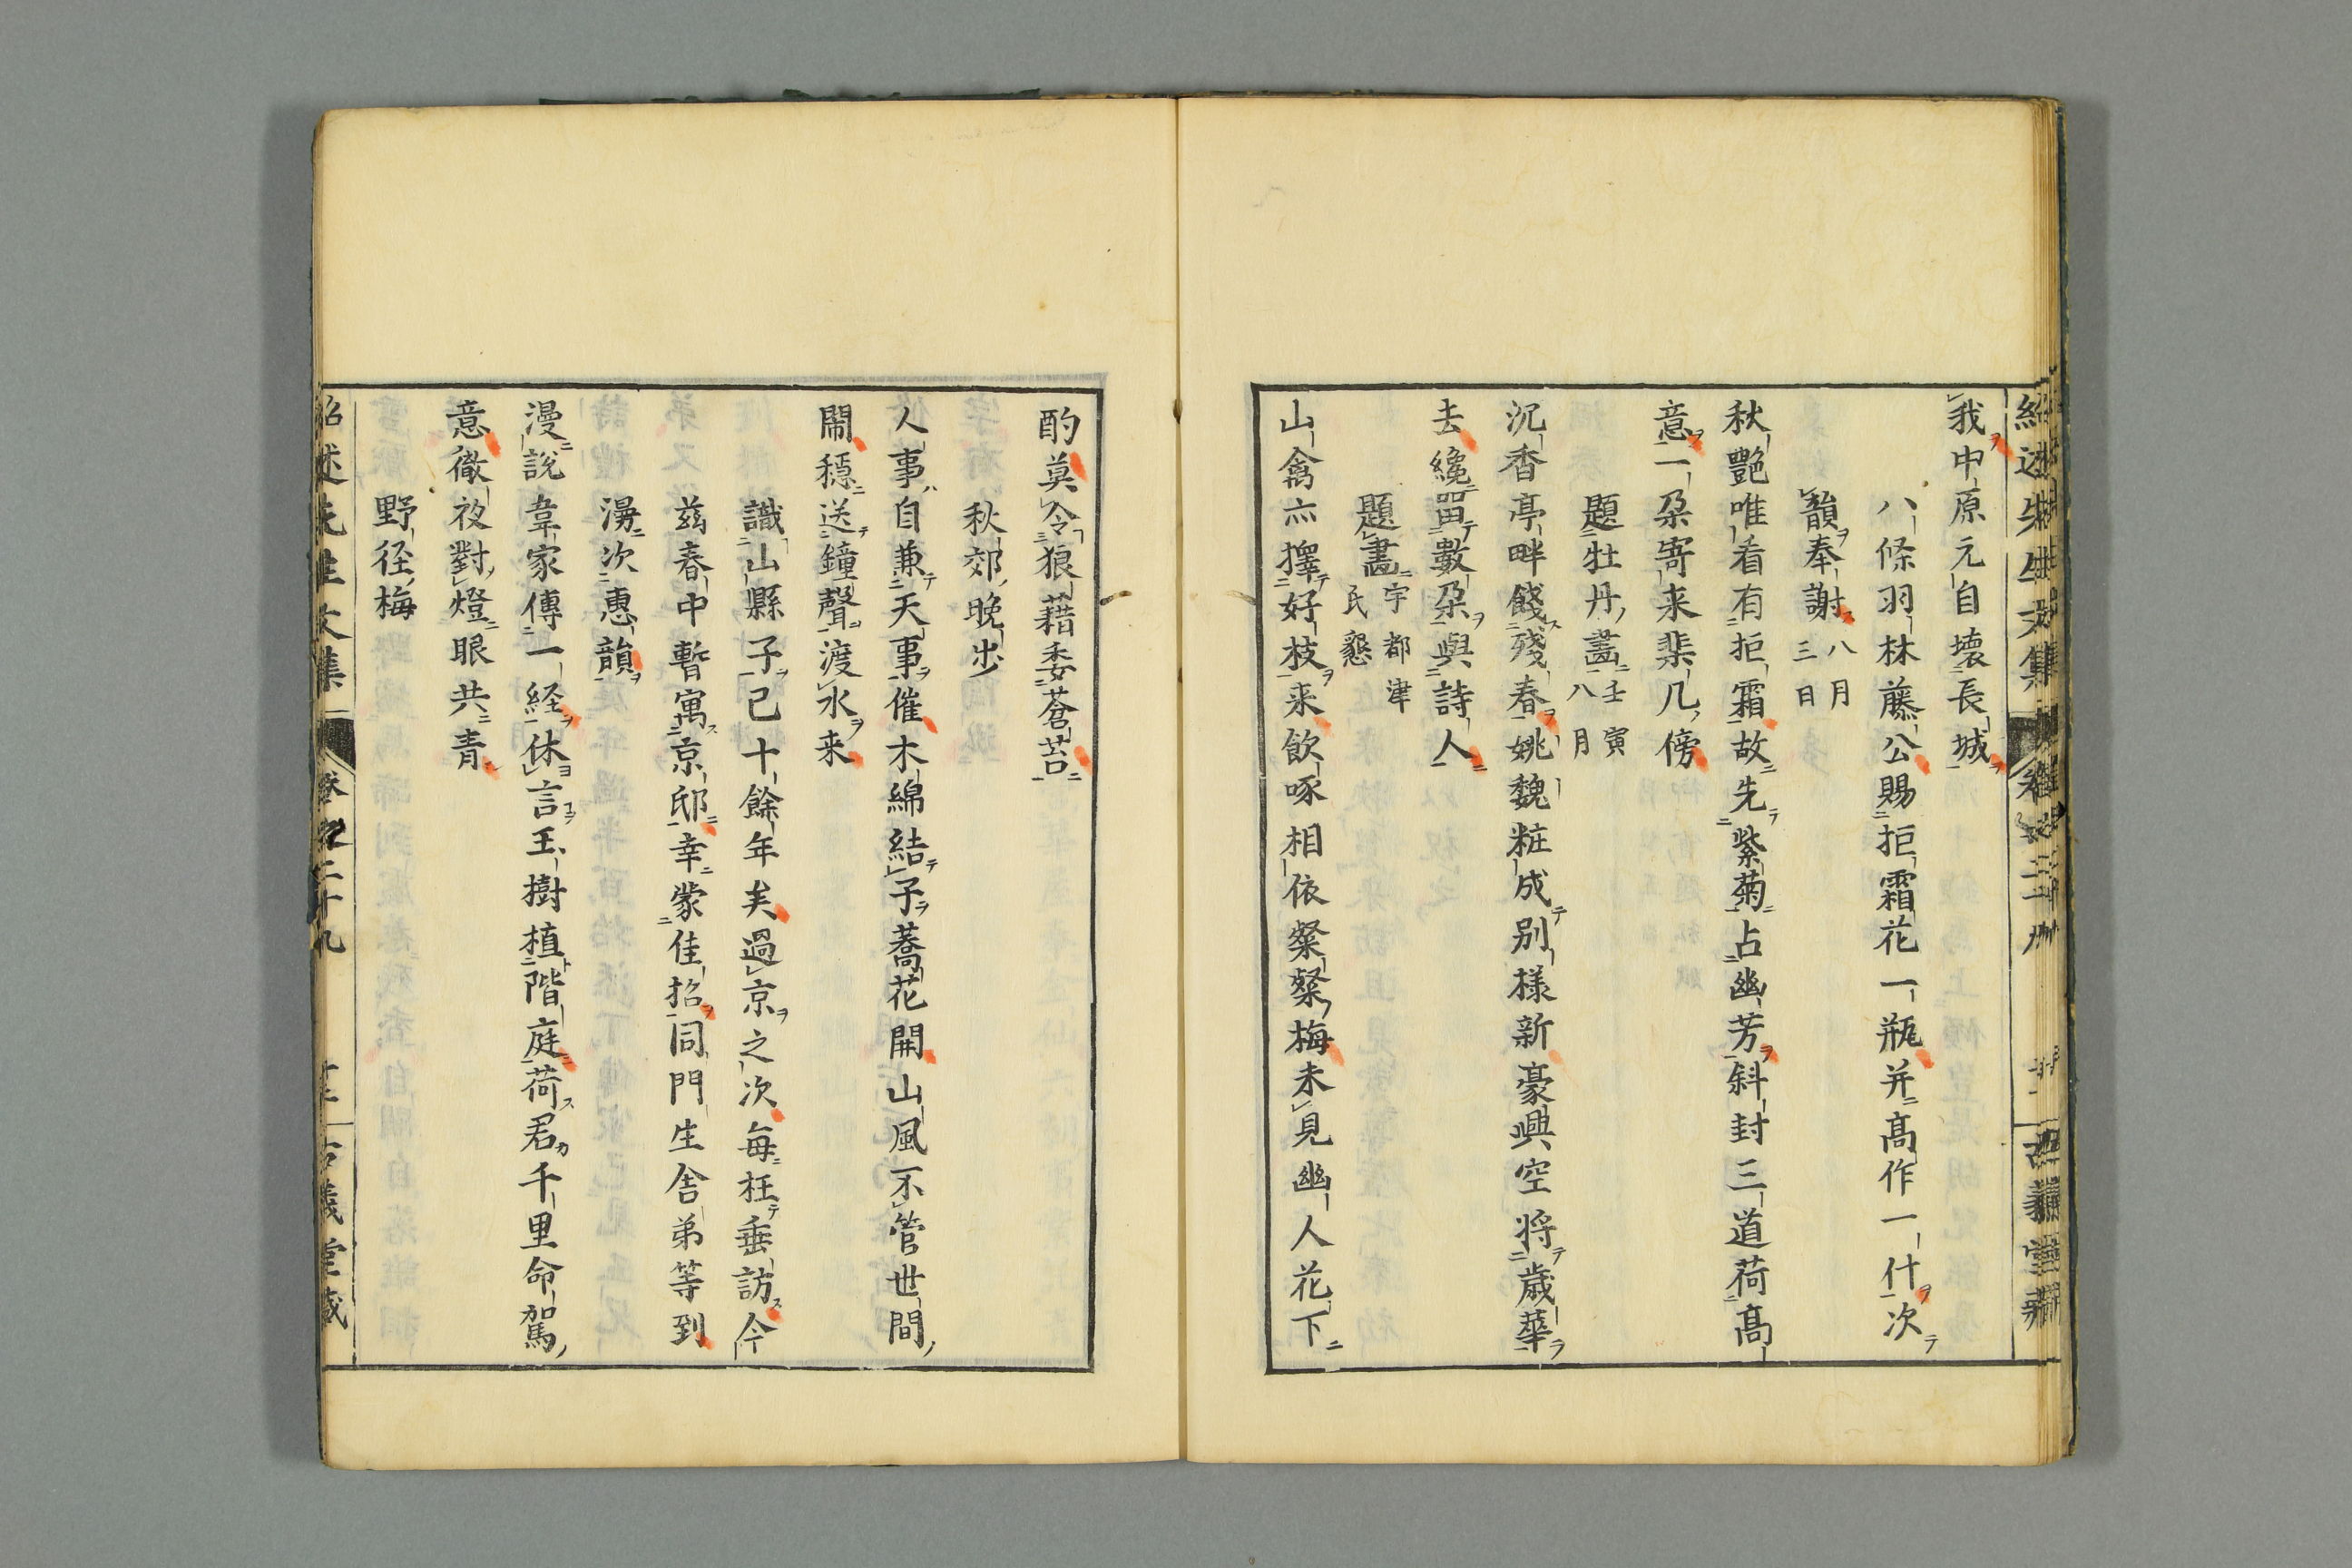 我中原元自壊長城
八條羽林藤公賜拒霜花一瓶并高作一什次
韻奉謝 八月三日
秋艷唯看有拒霜故先紫菊占幽芳斜封三道荷高
意一朶寄来棐几傍
題牡丹畫 壬寅八月
沉香亭畔餞殘春姚魏粧成別様新豪興空将歳華
去纔畱數朶與詩人
題畫 宇都津民懇
山禽亦擇好枝来飲啄相依粲粲梅未見幽人花下
酌莫令狼藉委蒼苔
秋郊晩歩
人事自兼天事催木綿結子蕎花開山風不管世間
閙穏送鐘聲渡水来
識山縣子已十餘年矣過京之次每枉垂訪今
茲春中暫寓京邸幸蒙佳招同門生舎弟等到
漫次惠韻
漫說韋家傳一経休言王樹植階庭荷君千里命駕
意徹夜對燈眼共青
野径梅
紹述先生文集 卷之二十九 古義堂藏